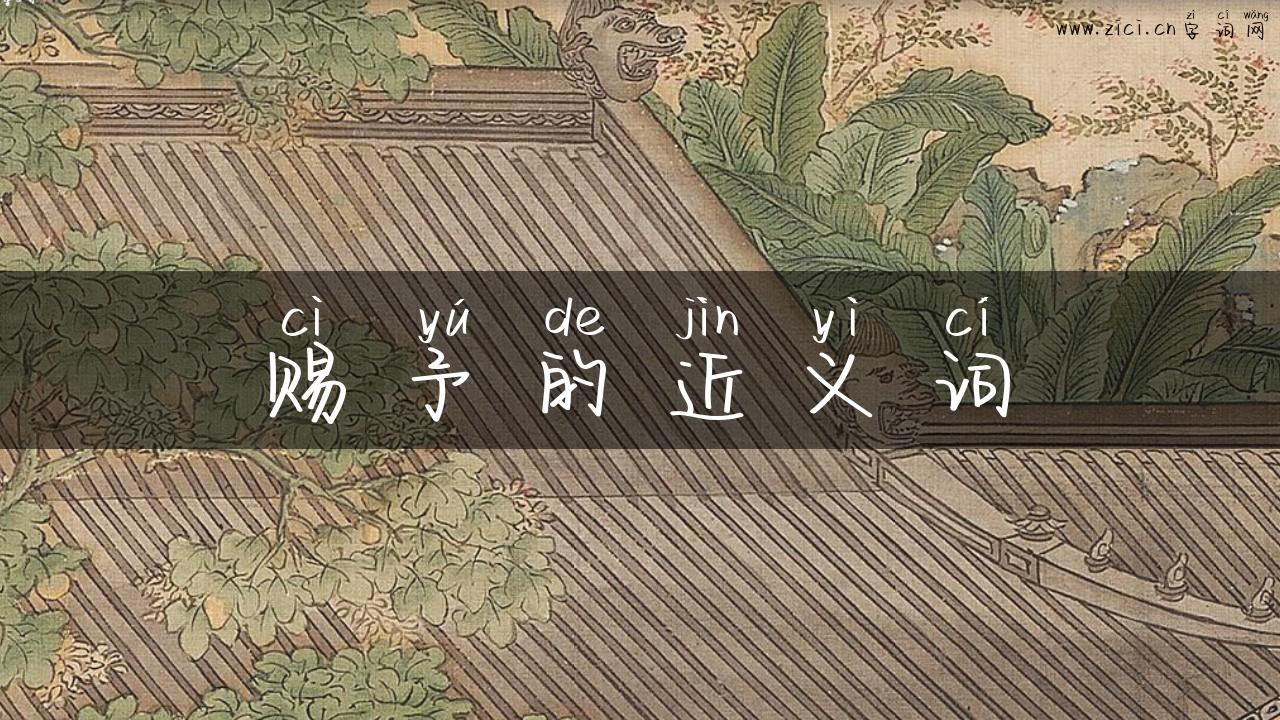 zì cí wǎng
www.zici.cn 字词网
cì yú de jìn yì cí
赐予的近义词